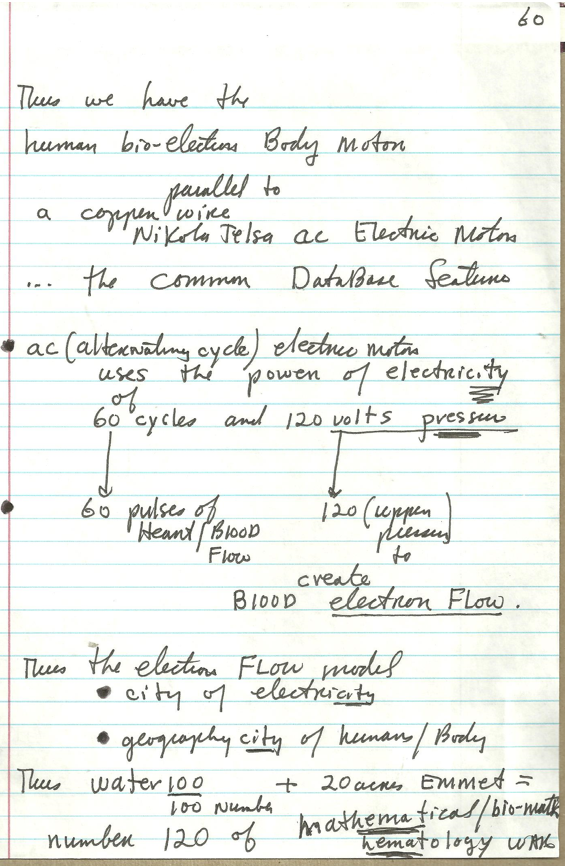 60
Thus we have the
human bio-electron Body Motor
parallel to
a copper wire
Nikola Telsa ac Electric Motors
... the common DataBase features
• ac (alternating cycle) electric motors
uses the power of electricity
of
60 cycles and 120 volts pressure
• 60 pulses of 120 (upper
Heart/Blood pressure)
Flow to
create
Blood electron Flow.
Thus the electron Flow model
• city of electricity
• geography city of humans/Body
Thus water 100 + 20 acres Emmet =
100 Number mathematical/bio-math
number 120 of hematology war